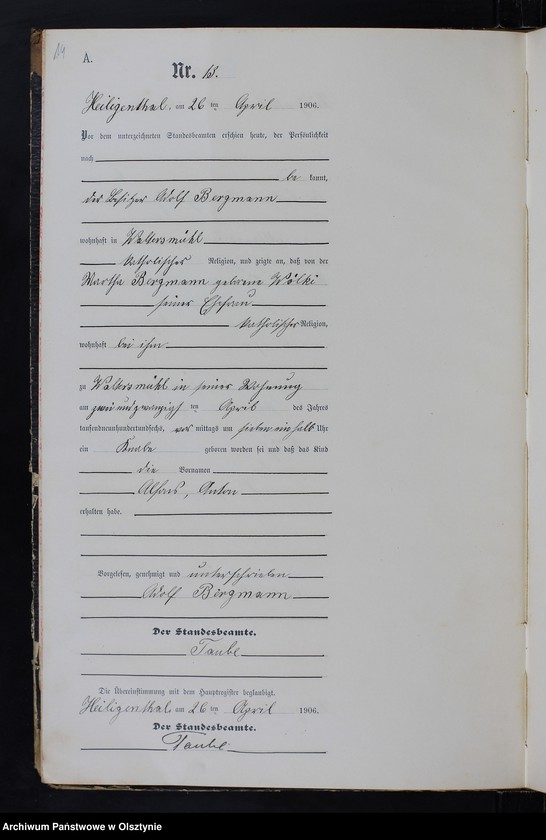 A.
Nr. 13.
Heiligenthal, am 26 ten April 1906.
Vor dem unterzeichneten Standesbeamten erschien heute, der Persönlichkeit
nach
be kannt,
der Besitzer Adolf Bergmann
wohnhaft in Waltersmühl
katholischer Religion, und zeigte an, daß von der
Martha Bergmann geborene Wölki
seiner Ehefrau
katholischer Religion,
wohnhaft bei ihm
zu Waltersmühl in seiner Wohnung
am zweiundzwanzigst ten April des Jahres
tausendneunhundertundsechs, vor mittags um sieben einhalb Uhr
ein Knabe geboren worden sei und daß das Kind
die Vornamen
Alfons, Anton
erhalten habe.
Vorgelesen, genehmigt und unterschrieben
Adolf Bergmann
Der Standesbeamte.
Taube
Die Übereinstimmung mit dem Hauptregister beglaubigt.
Heiligenthal, am 26 ten April 1906.
Der Standesbeamte.
Taube
Archiwum Państwowe w Olsztynie